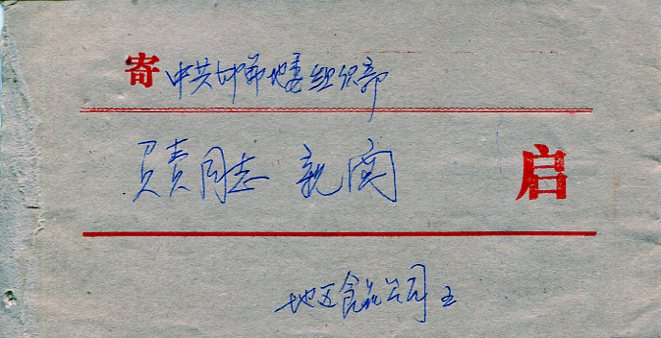 寄 中共邯郸地委组织部
负责同志 亲阅 启
地区食品公司